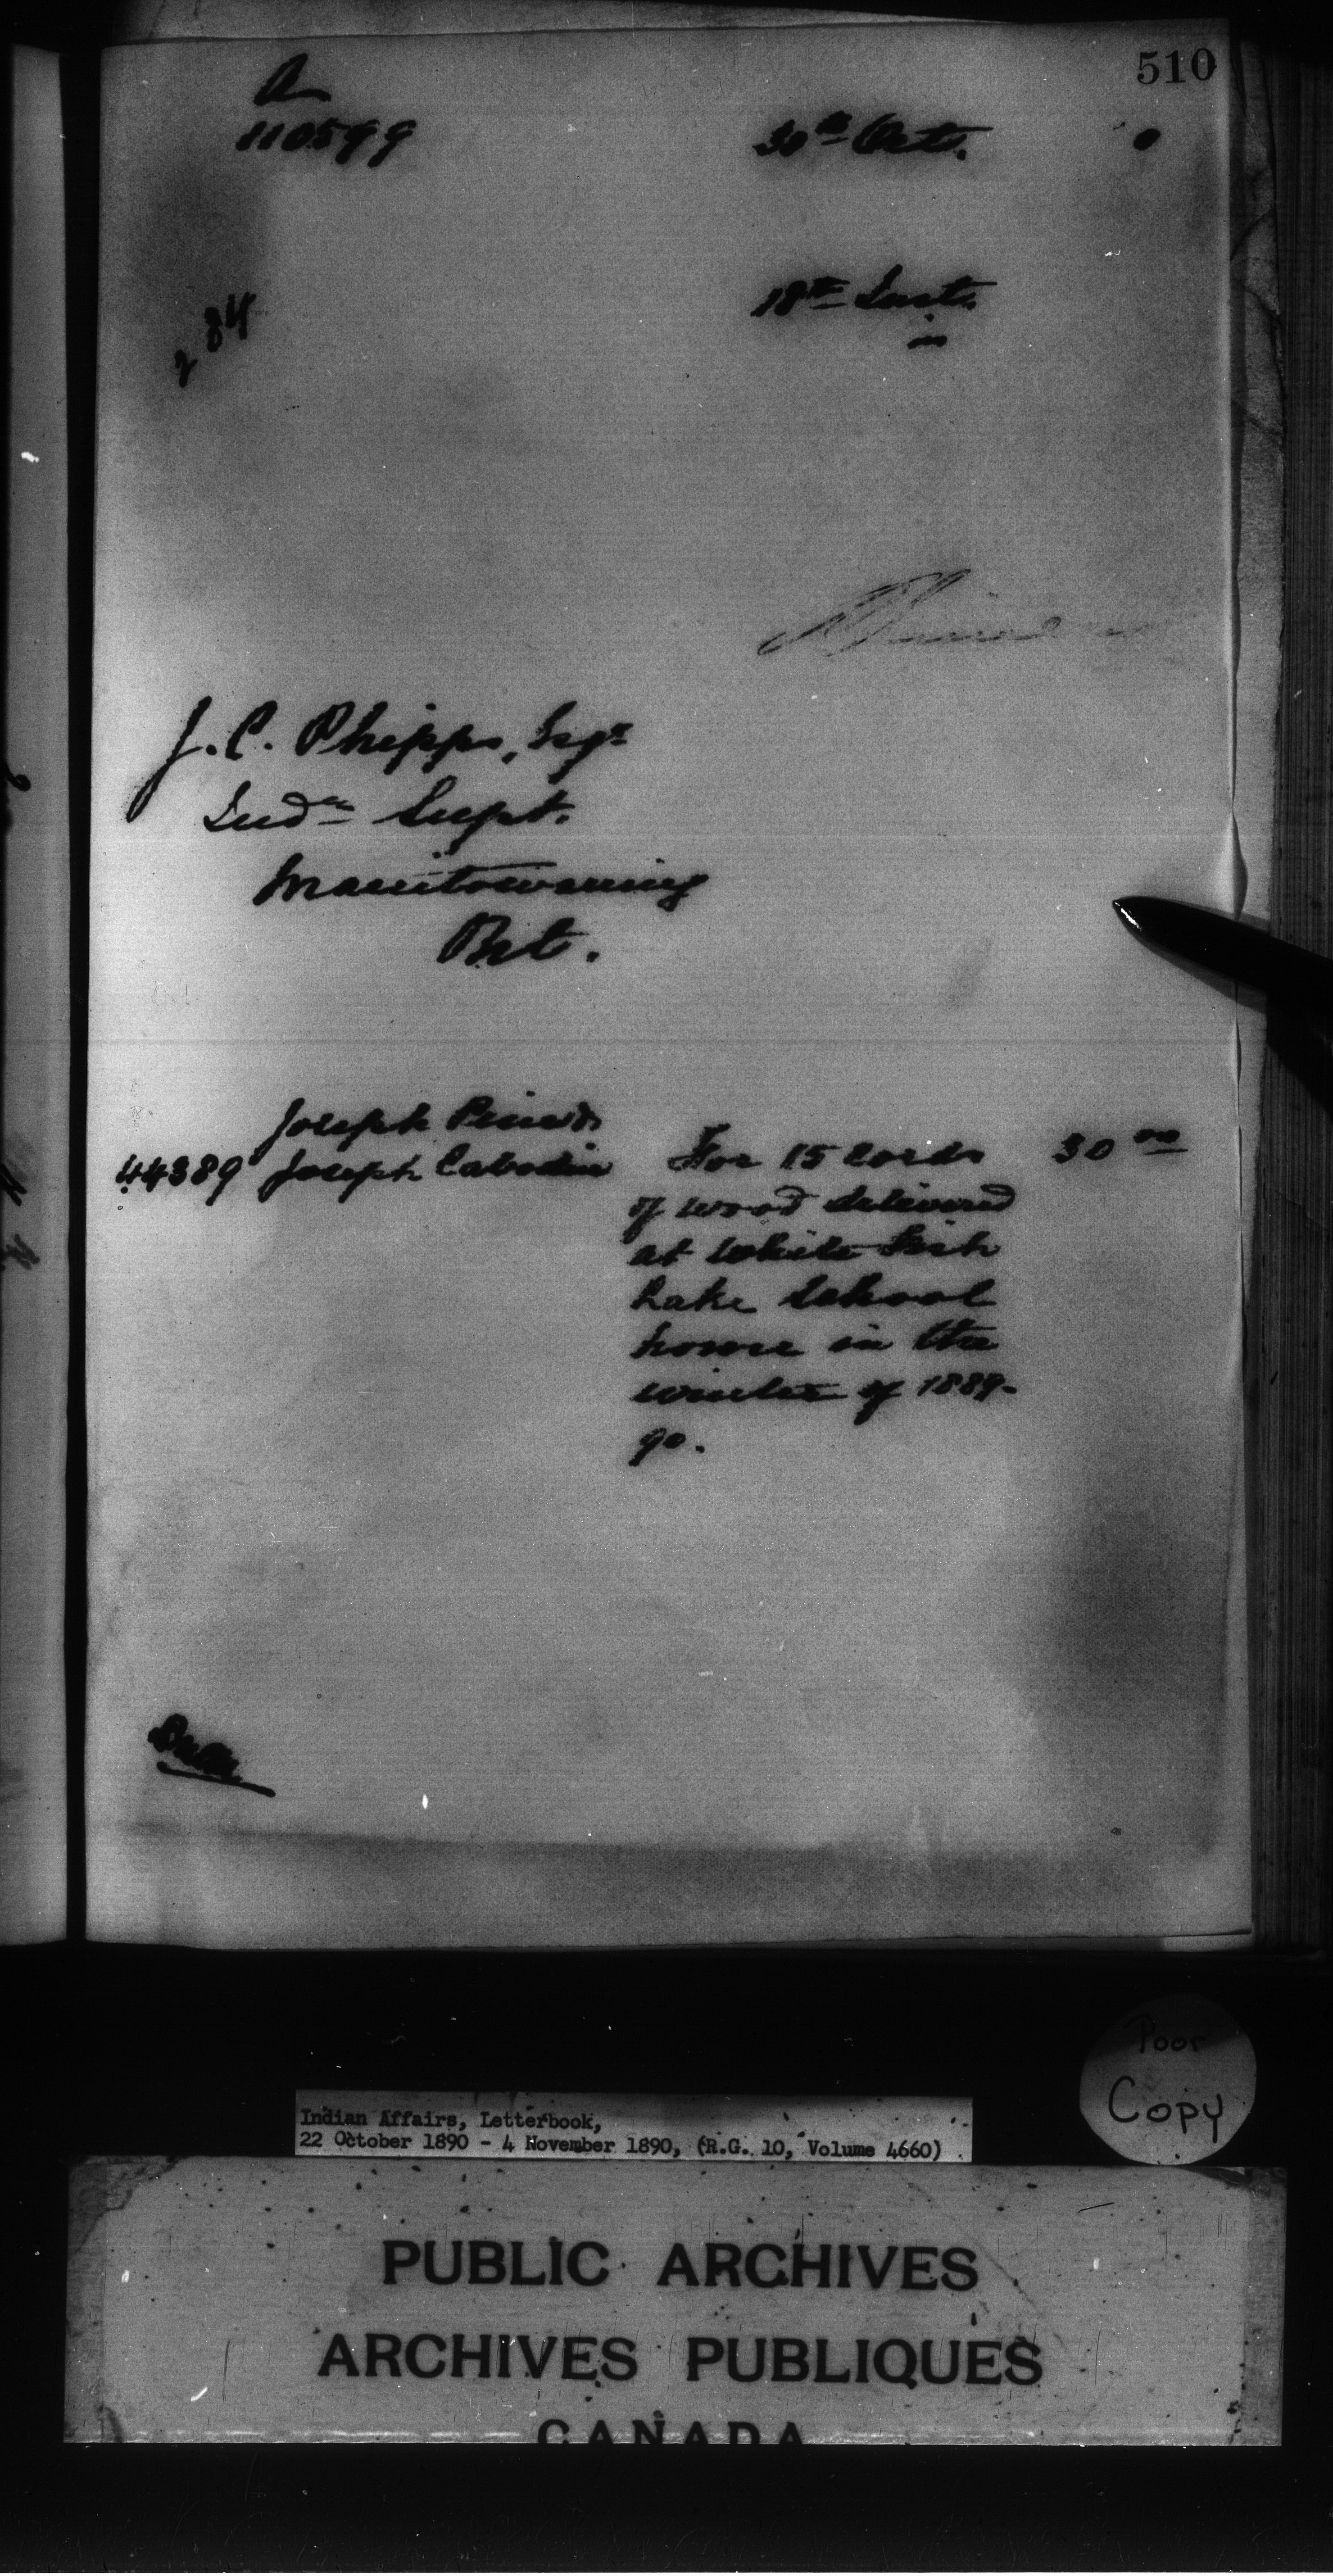 510
A
110599
30th Oct. 0
18th Inst.
in
284
J. C. Phipps, Esqr
Indn Supt.
Manitowaning
Ont.
Joseph
44389 Joseph Cabodin For 15 Cords 30 00
of wood delivered
at White Fish
Lake School
house in the
winter of 1889-
90.
Poor
Copy
Indian Affairs, Letterbook,
22 October 1890 - 4 November 1890, (R.G. 10, Volume 4660)
PUBLIC ARCHIVES
ARCHIVES PUBLIQUES
CANADA